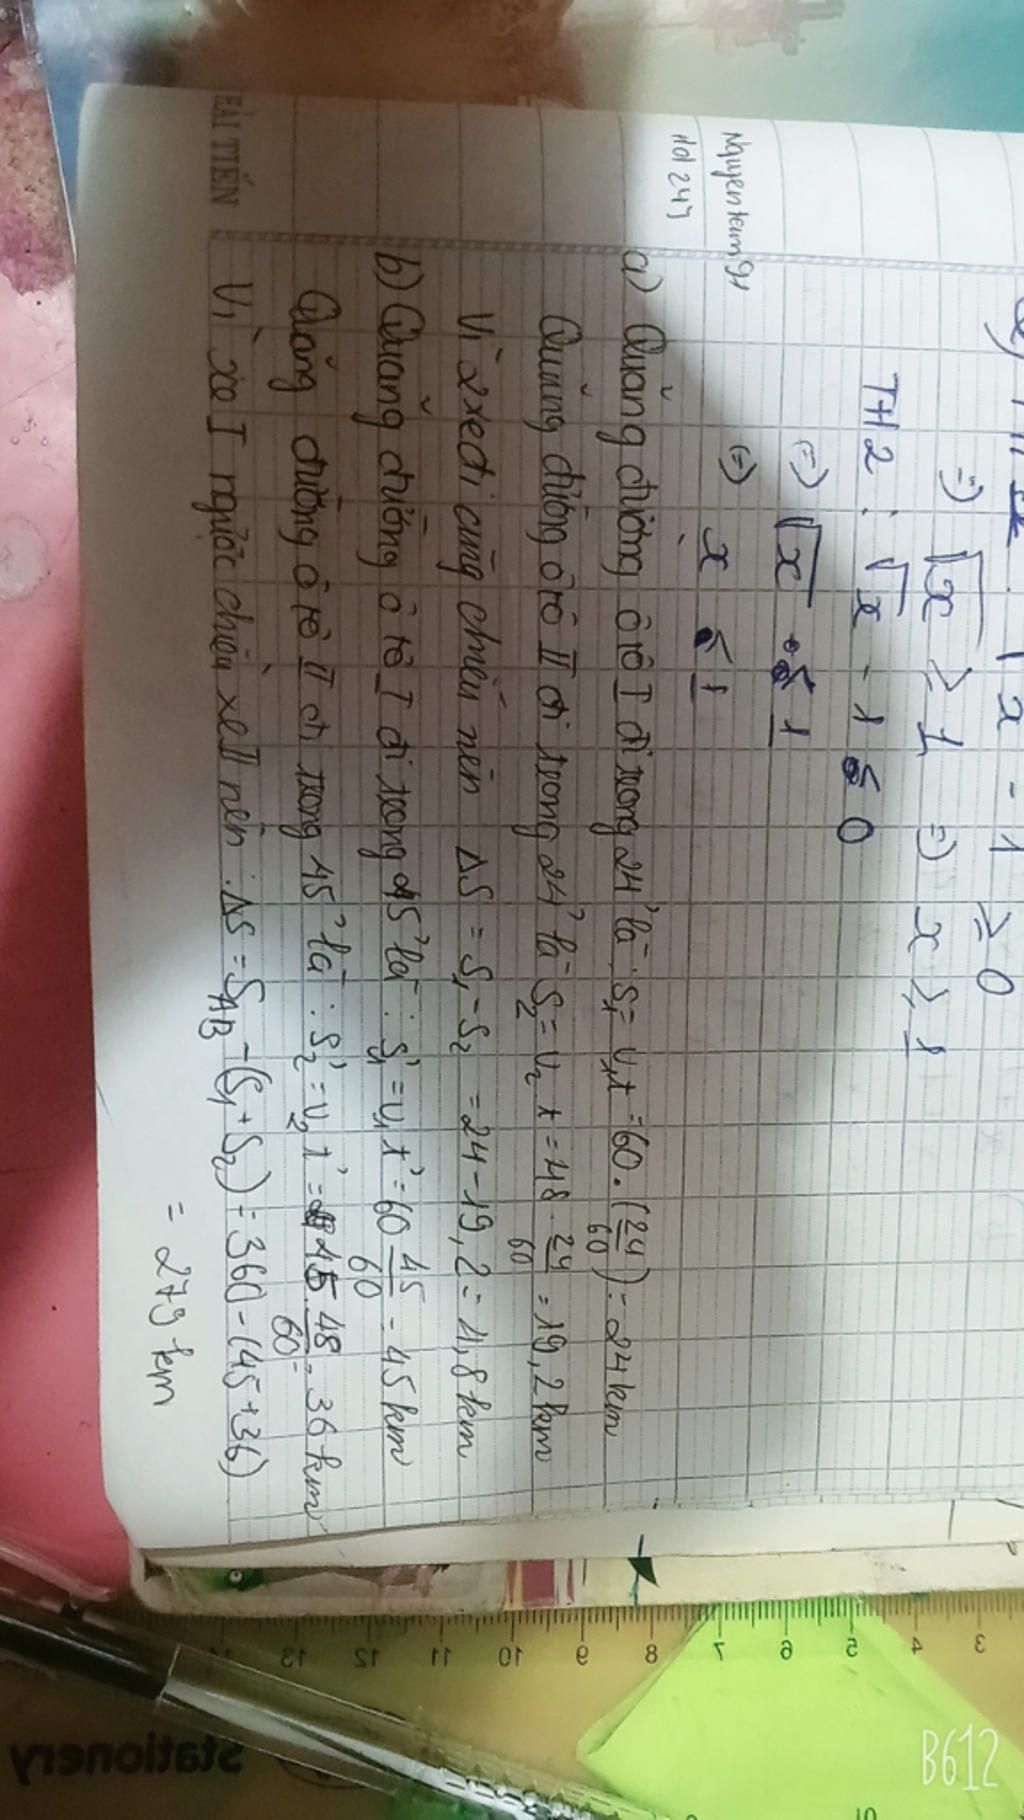 x - 1 ≥ 0
=) √x ≥ 1 =) x ≥ 1
TH2 : √x - 1 ≤ 0
(=) √x ≤ 1
(=) x ≤ 1
Nguyenteam91
a) Quãng đường ô tô I đi trong 24' là : S1 = v1t = 60 . (24/60) = 24km
Quãng đường ô tô II đi trong 24' là S2 = v2 t = 48 . 24/60 = 19,2 km
Vì 2 xe đi cùng chiều nên ΔS = S1 - S2 = 24 - 19,2 = 4,8 km
b) Quãng đường ô tô I đi trong 45' là : S'1 = v1 t' = 60 45/60 = 45 km
Quãng đường ô tô II đi trong 45' là : S'2 = v2 t' = 45 48/60 = 36 km
Vì xe I ngược chiều xe II nên : ΔS = SAB - (S1 + S2) = 360 - (45 + 36)
= 279 km
HẢI TIẾN
3 4 5 6 7 8 9 10 11 12 13
stationery
B612